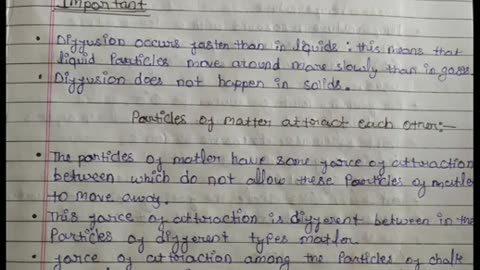 Important
• Diffusion occurs faster than in liquids : this means that
liquid Particles move around more slowly than in gases.
• Diffusion does not happen in solids.
Particles of matter attract each other:-
• The particles of matter have some force of attraction
between which do not allow these Particles of matter
to move away.
• This force of attraction is different between in the
Particles of different types matter
• force of attraction among the Particles of chalk